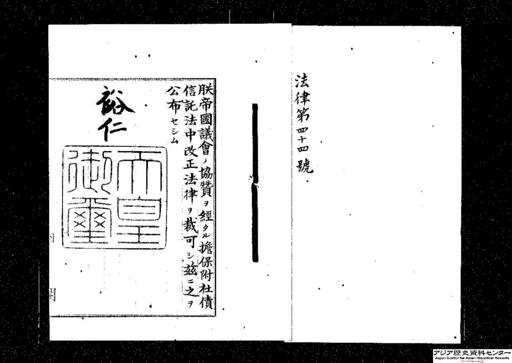 法律第四十四號
朕帝國議會ノ協賛ヲ經タル擔保附社債
信託法中改正法律ヲ裁可シ茲ニ之ヲ
公布セシム
裕仁
天皇
御璽
アジア歴史資料センター
Japan Center for Asian Historical Records